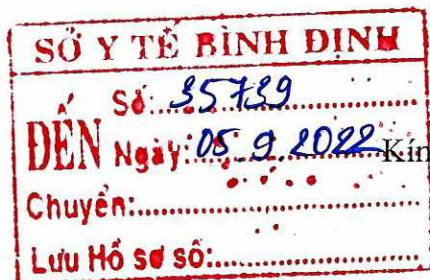 SỞ Y TẾ BÌNH ĐỊNH
ĐẾN
Số: 35739
Ngày: 05.9.2022
Kín
Chuyển:
Lưu Hồ sơ số: